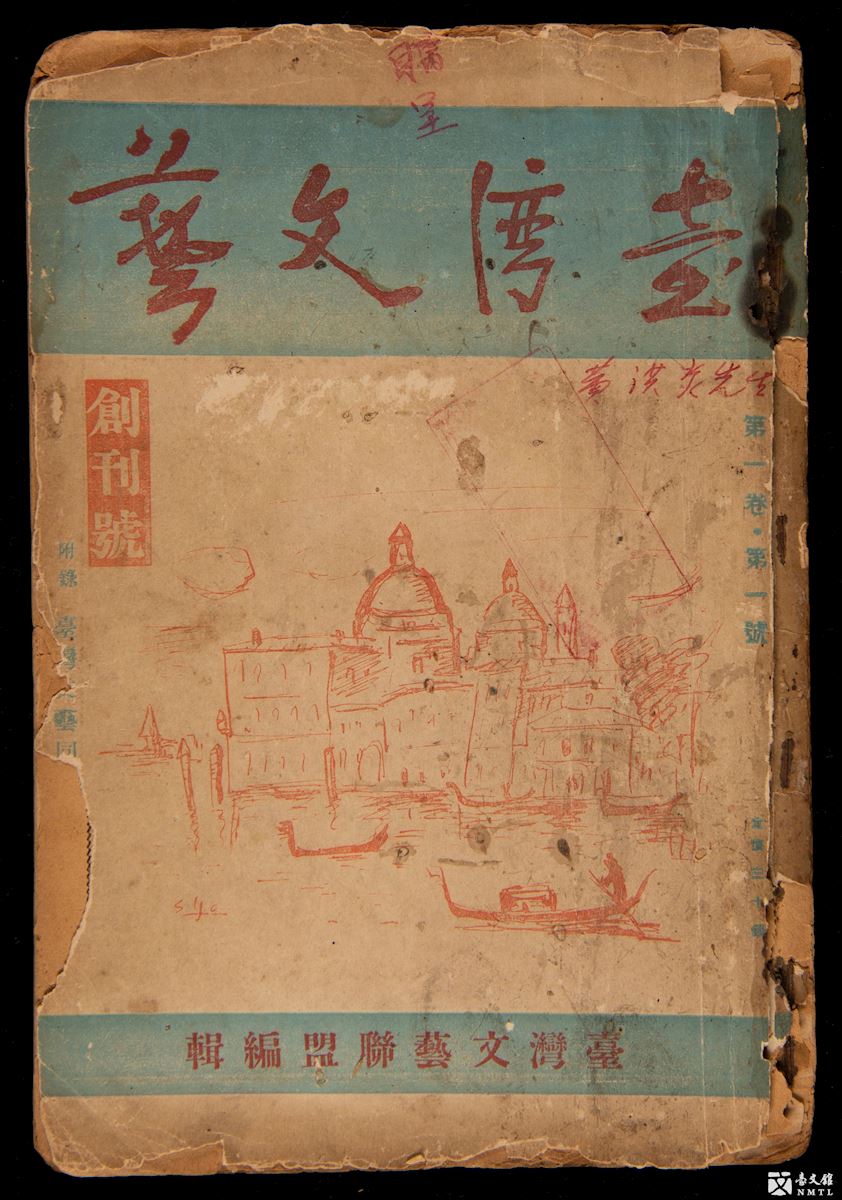 臺灣文藝
黃洪炎先生
第一卷・第一號
定價三十錢
創刊號
附錄 臺灣文藝同
S.y.e
臺灣文藝聯盟編輯
臺文館
NMTL